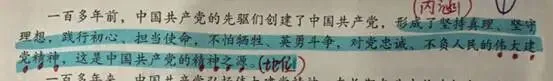 (内涵)
一百多年前，中国共产党的先驱们创建了中国共产党，形成了坚持真理、坚守
理想，践行初心、担当使命，不怕牺牲、英勇斗争，对党忠诚、不负人民的伟大建
党精神，这是中国共产党的精神之源。(地位)